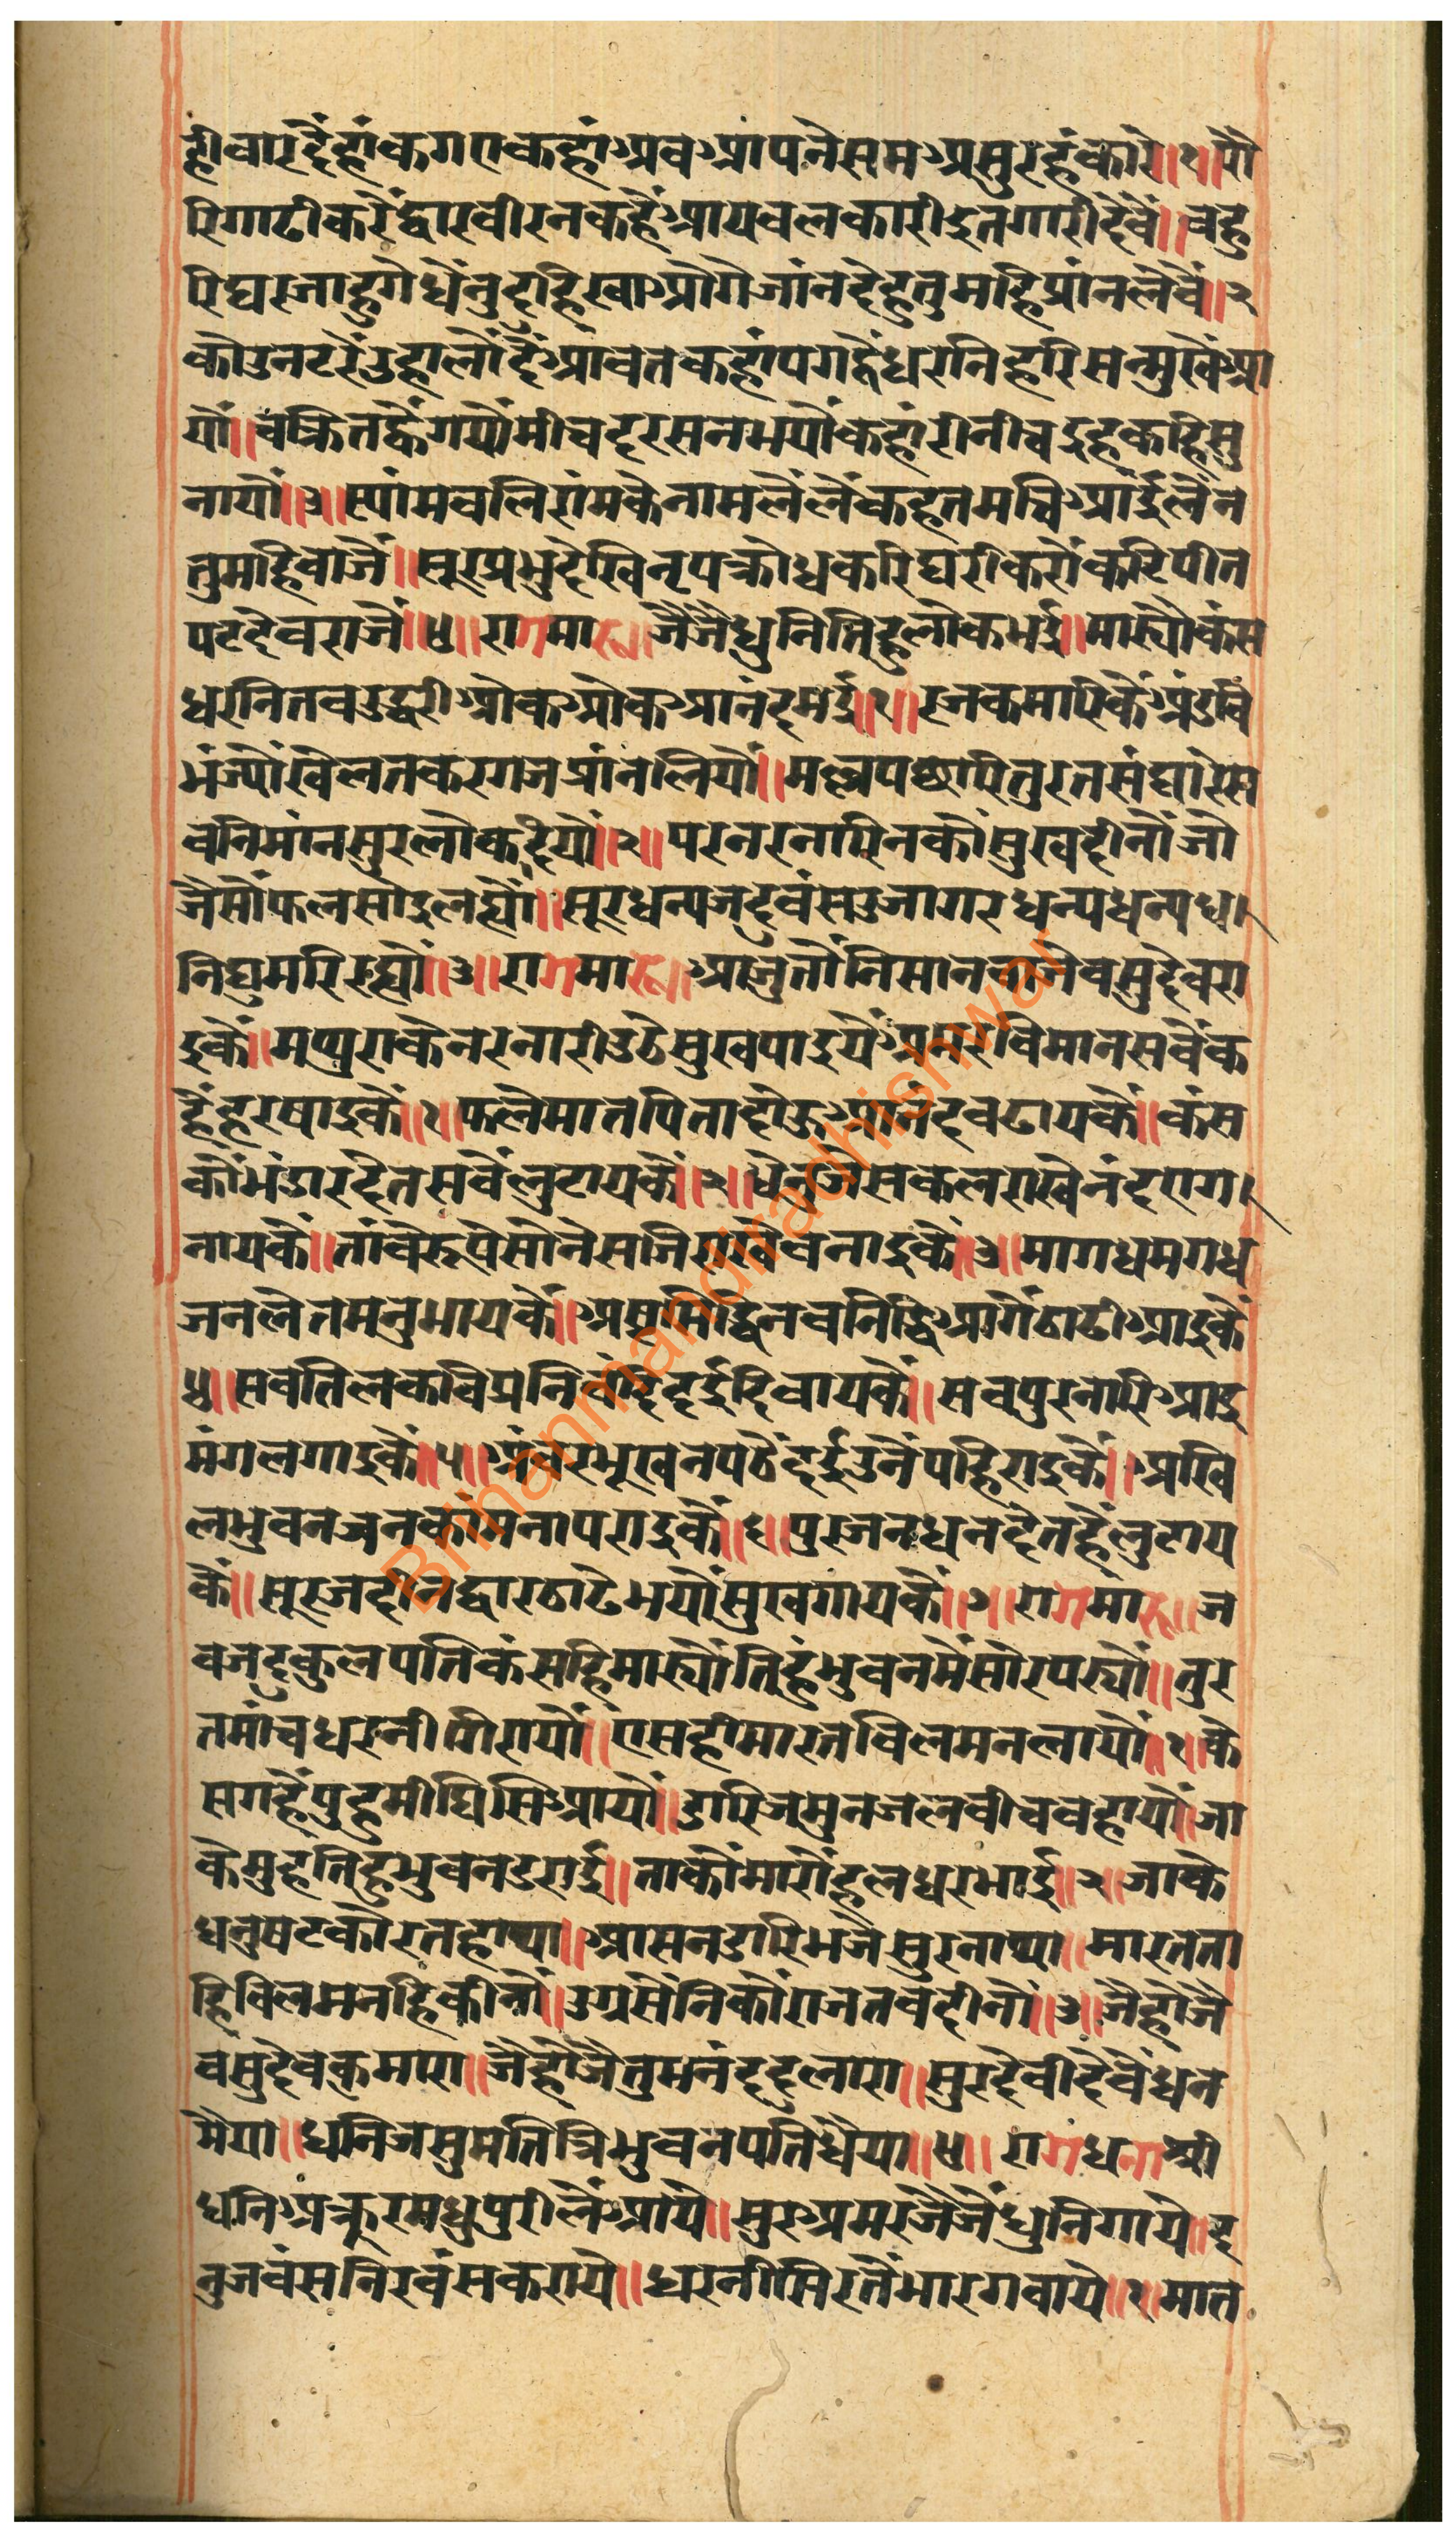 ही वार दैहां कगरा कहां अव आपने सम असुर हंकारे॥१॥पौ
रि गाढी करै द्वार वीरन कहै आय वल कारी इत गारी दैवै॥वहु
रि घर जाहुगे धैनु दुहि खाओगे जांन देहु तुमहि प्रांन लैवै॥२
कोउ नटरै उहालौं दैं आवत कहां पग द्वै धरनि हरि सन्मुखैं आ
यौं॥चक्रित ह्वै गयौं मीच दरसन भयौं कहां री नीच इह कहि सु
नायौं॥३॥स्यांम वलिरांमकै नाम लै लै कहत मचि आई लैन
तुमहि वाजै॥सूर प्रभु देखि नृप क्रोध करि घरी कर्यौ कटि पीत
पट देव राजै॥४॥राग मारू॥जै जै धुनि तिहु लोक भई॥मार्यौ कंस
धरनि तव उद्धरी ओक ओक आनंद मई॥१॥रजक मारिकै धनुवि
भंज्यौं खेलत कर गज प्रांन लियौं॥मल्ल पछारि तुरत संघारे से
वनि मांन सुरलोक दियौं॥२॥पर नर नारिन कौं सुख दीनौं जो
जैसौ फल सोइ लह्यौ॥सूर धन्य जदुवंस उजागर धन्य धन्य ध्व
नि घुमरि रह्यौ॥३॥राग मारू॥आजु तौ निसान वाजै वसुदेव रा
इकै॥मथुराकै नर नारी उठे सुख पाइयै अमर विमान सवै क
हैं हरषाइकै॥१॥फूले मात पिता दोऊ आनंद वढायकै॥कंस
कौ भंडार देत सवै लुटायकै॥२॥धेनु जै सकल राखे नंद राग
नायकै॥तांवे रूपे सोने सजि राखे वनाइकै॥३॥मागध मगध
जन लेत मनुभायकै॥अष्ट सिद्धि नव निद्धि आगें ठाढी आइकै
४॥सवतिलक विप्रनि वंदि दई दिवायकै॥सव पुर नारि आइ
मंगल गाइकै॥५॥अंवर भूखन पठै दई उनै पहिराइकै॥अखि
ल भुवन जन कांमना पराइकै॥६॥पुरजन धन देत हैं लुटाय
कै॥सूर ज दीन द्वार ठाढे भयौं सुख गायकै॥७॥राग मारू॥ज
व जदुकुल पति कंसहि मार्यौ तिहुं भुवन मै सोर पर्यौ॥तुर
त मांच धरनी गिरायौं॥एसही मारत विलम न लायौं॥१॥के
स गहैं पुहुमी घिसि आयौं॥डारि जमुन जल वीच वहायौं॥जा
के मुह तिहु भुवन डराई॥ताकौं मारौ हलधर भाई॥२॥जाके
धनुष टकोरत हाथा॥आसन डारि भजै सुरनाथा॥मारत ता
हि विलम नहि कीनौं॥उग्रसैनि कौं राज तव दीनौ॥३॥जै हो जै
वसुदेव कुमारा॥जै हो जै तुम नंद दुलारा॥सुर देवी देवै धन
मैया॥धनि जसुमति त्रिभुवन पति धैया॥४॥राग धनाश्री
धनि अक्रूर मधुपुरी लैं आये॥सुर अमर जै जै धुनि गाये॥द
नुज वंस निरवंस कराये॥धरनी सिर तै भार गवाये॥१॥मात
Brihanmandiradhishwar